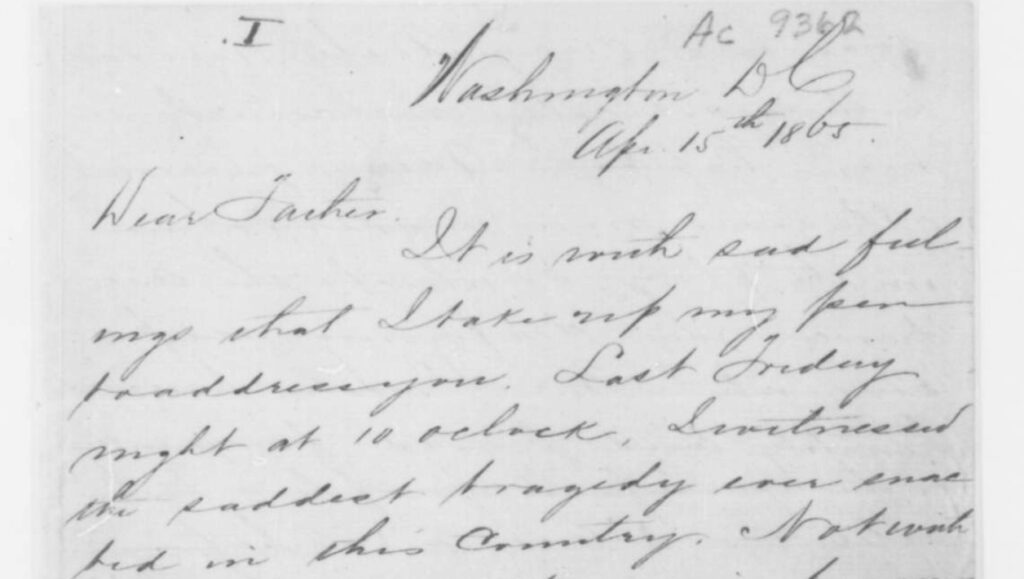 I
Ac 9362
Washington D C
Apr. 15th 1865.
Dear Father.
It is with sad feel
ings that I take up my pen
to address you. Last Friday
night at 10 oclock, I witnessed
the saddest tragedy ever enac
ted in this Country. Notwith